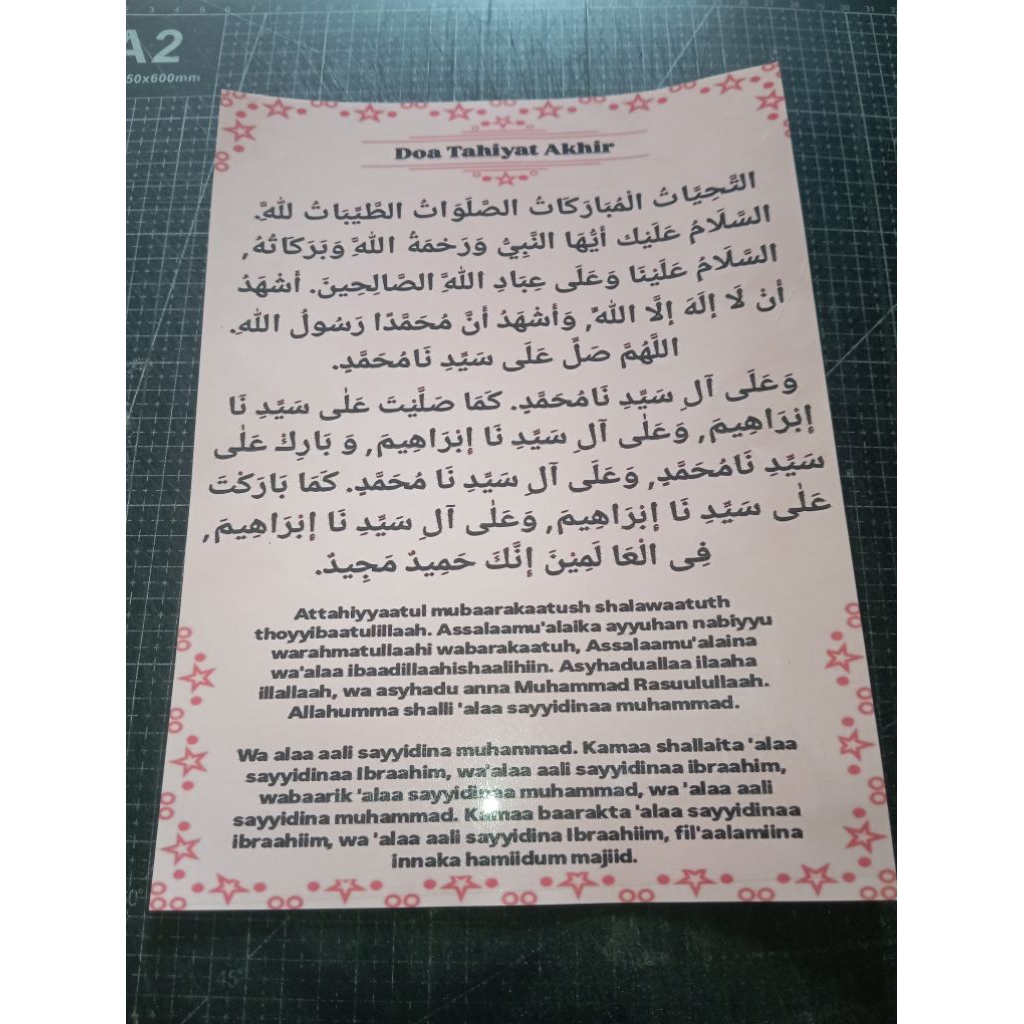 A2
50x600mm
Doa Tahiyat Akhir
التَّحِيَّاتُ الْمُبَارَكَاتُ الصَّلَوَاتُ الطَّيِّبَاتُ لِلَّهِ.
السَّلَامُ عَلَيْك أَيُّهَا النَّبِيُّ وَرَحْمَةُ اللَّهِ وَبَرَكَاتُهُ,
السَّلَامُ عَلَيْنَا وَعَلَى عِبَادِ اللَّهِ الصَّالِحِينَ. أَشْهَدُ
أَنْ لَا إلَهَ إلَّا اللَّهُ, وَأَشْهَدُ أَنَّ مُحَمَّدًا رَسُولُ اللَّهِ.
اللَّهُمَّ صَلِّ عَلَى سَيِّدِ نَامُحَمَّدٍ.
وَعَلَى آلِ سَيِّدِ نَامُحَمَّدٍ. كَمَا صَلَّيْتَ عَلٰى سَيِّدِ نَا
إبْرَاهِيمَ, وَعَلٰى آلِ سَيِّدِ نَا إبْرَاهِيمَ, وَ بَارِكْ عَلٰى
سَيِّدِ نَامُحَمَّدٍ, وَعَلَى آلِ سَيِّدِ نَا مُحَمَّدٍ. كَمَا بَارَكْتَ
عَلٰى سَيِّدِ نَا إبْرَاهِيمَ, وَعَلٰى آلِ سَيِّدِ نَا إبْرَاهِيمَ,
فِى الْعَا لَمِيْنَ إنَّكَ حَمِيدٌ مَجِيدٌ.
Attahiyyaatul mubaarakaatush shalawaatuth
thoyyibaatulillaah. Assalaamu'alaika ayyuhan nabiyyu
warahmatullaahi wabarakaatuh, Assalaamu'alaina
wa'alaa ibaadillaahishaalihiin. Asyhaduallaa ilaaha
illallaah, wa asyhadu anna Muhammad Rasuulullaah.
Allahumma shalli 'alaa sayyidinaa muhammad.
Wa alaa aali sayyidina muhammad. Kamaa shallaita 'alaa
sayyidinaa Ibraahim, wa'alaa aali sayyidinaa ibraahim,
wabaarik 'alaa sayyidinaa muhammad, wa 'alaa aali
sayyidina muhammad. Kamaa baarakta 'alaa sayyidinaa
ibraahiim, wa 'alaa aali sayyidina Ibraahiim, fil'aalamiina
innaka hamiidum majiid.
45°